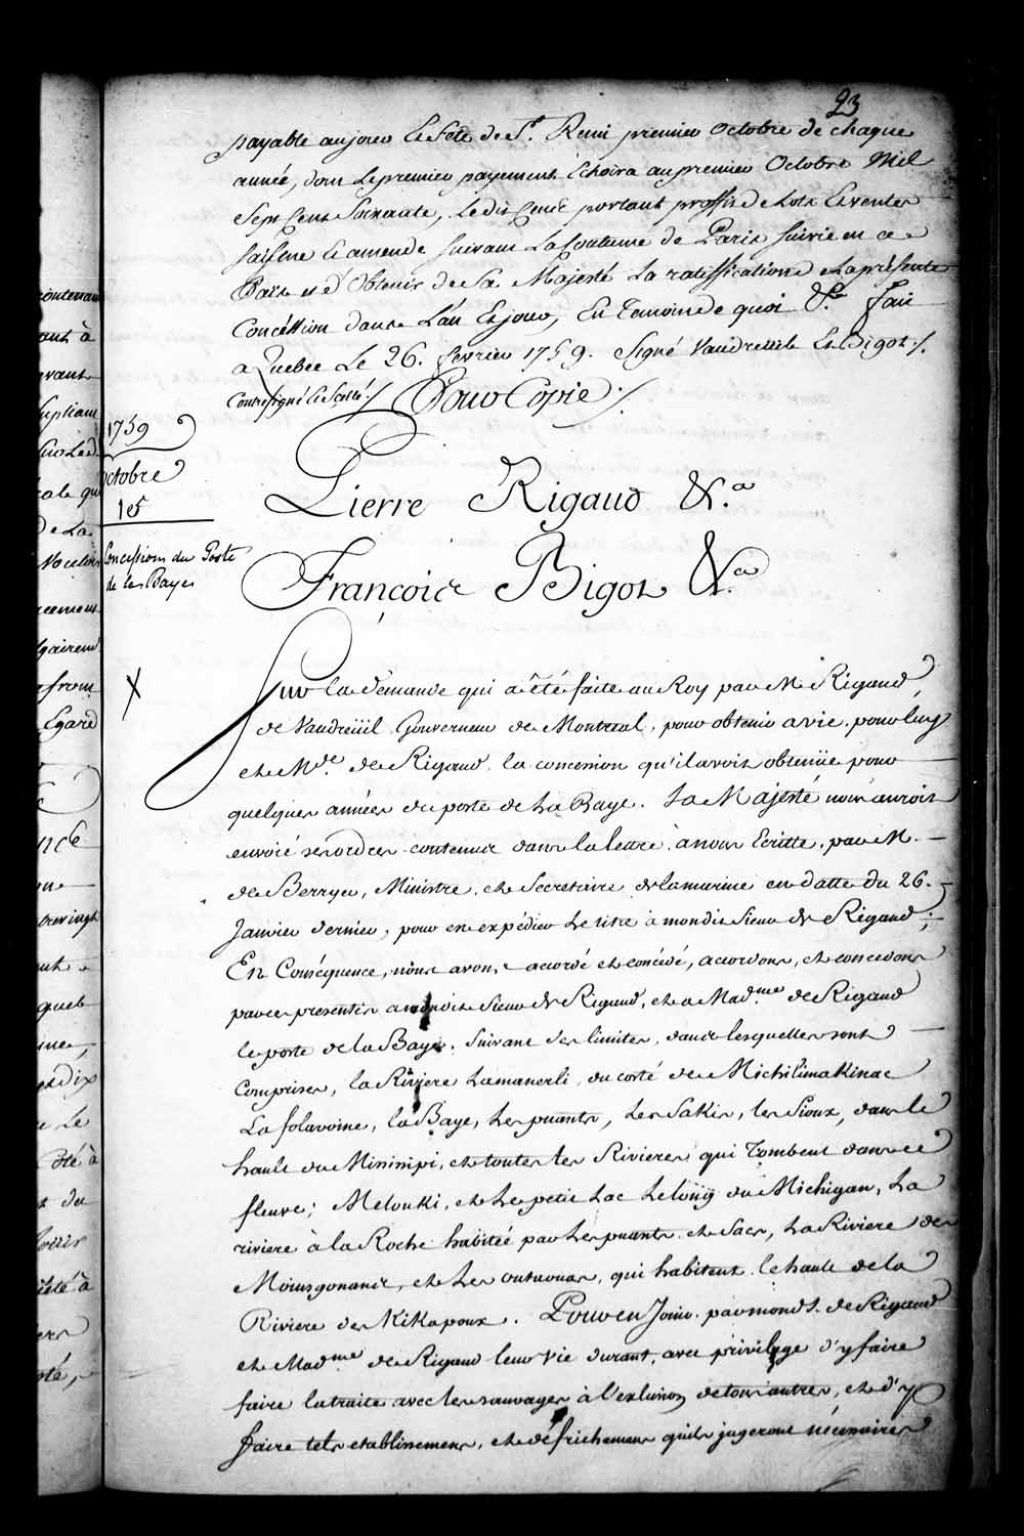 23
payable au jour Et fête de St. Remi premier Octobre de chaque
année, dont Le premier payement Echoira au premier Octobre Mil
Sept Cent Soixante, Le dit Cens portant proffit de Lots Et ventes
saisine Et amende suivant La Coutume de Paris suivie en ce
Païs et d'Obtenir de Sa Majesté La ratiffication de La présente
Concéssion dans L'an Et jour, En Temoin de quoi &a. fait
a Quebec Le 26. fevrier 1759. Signé Vaudreuil Et Bigot ./.
Contresigné Et Scellé ./. Pour Copie ./.
1759
Octobre
15
Concessions du Poste
de les Bayes
Pierre Rigaud &.a
François Bigot &.a
X
Sur la demande qui a été faite au Roy par M Rigaud
de Vaudreüil Gouverneur de Montreal, pour obtenir a vie, pour luy
et M.de de Rigaud la concession qu'il avoit obtenüe pour
quelques années du poste de La Baye. Sa Majesté nous auroit
envoié ses ordres contenus dans la lettre à nous Ecritte, par M.
de Berryer, Ministre et Secretaire de la marine en datte du 26.
Janvier dernier, pour en expédier Le titre à mondit Sieur de Rigaud;
En Conséquence, nous avons accordé et concédé, accordons, et concedons
par ces presentes a mondit Sieur de Rigaud, et a Mad.me de Rigaud
le poste de la Baye. Suivant ses limites, dans lesquelles sont
Comprises, la Riviere Lamanerli du costé de Michilimakinac
La folavoine, la Baye, Les puants, Les Sakis, les Sioux, dans le
hault du Missisipi, et toutes les Rivieres qui Tombent dans ce
fleuve; Melouki, et Le petit Lac Lelong du Michigan, La
riviere à la Roche habitée par Les puants et Sacs, La Riviere des
et Les outaouas, qui habitent le hault de la
Riviere des KiKapoux. Pour en Jouir par mond S. de Rigaud
et Mad.me de Rigaud leur vie durant, avec privilege d'y faire
faire la traite avec les sauvages à l'exlusion de tous autres, et d'y
faire tels etablissemens, et défrichemens qu'ils jugeront nécessaires